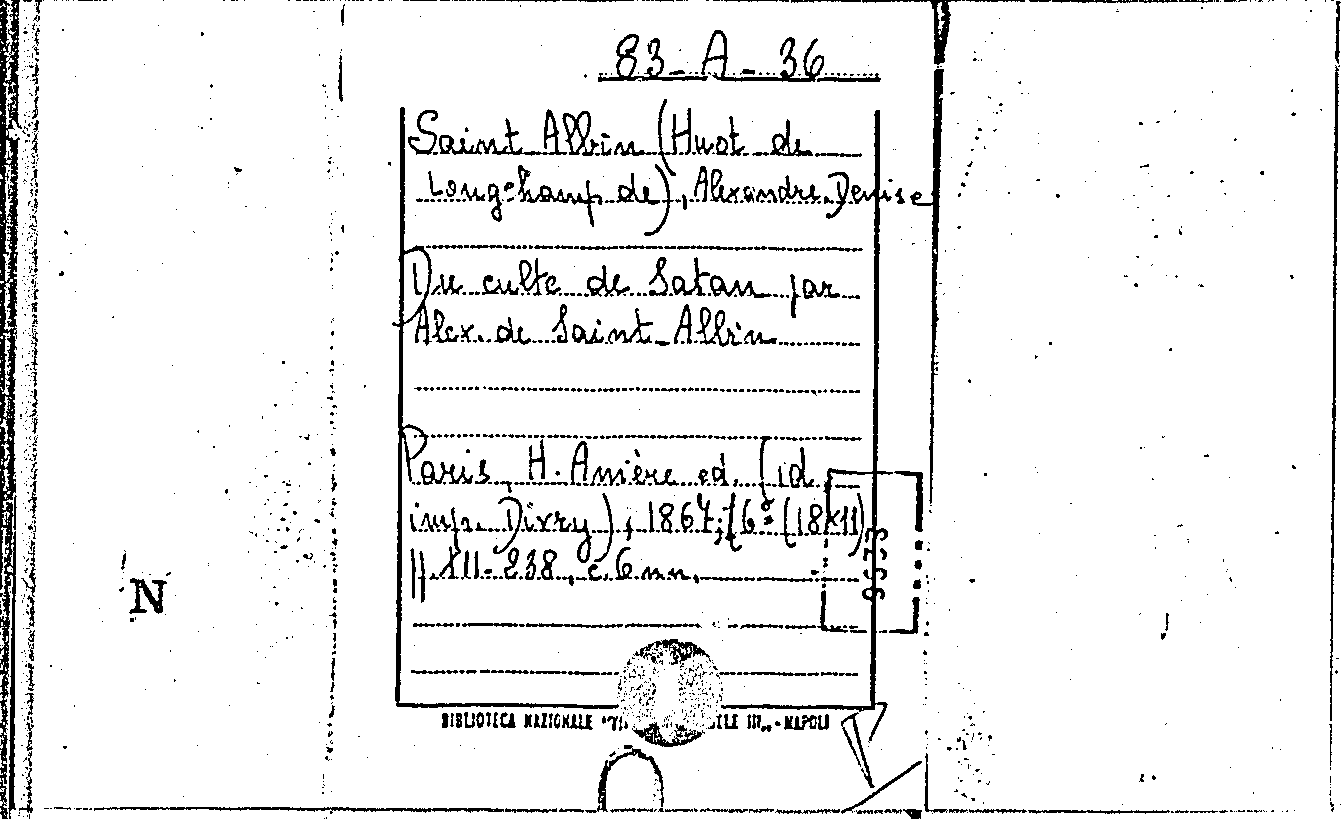 83-A-36
Saint Albin (Huot de
Longchamp de), Alexandre Denise
Du culte de Satan par
Alex. de Saint-Albin
Paris, H. Anière ed. (id.
imp. Divry), 1867; 16º (18x11)
pp. XII-238, c. 6 nn.
N
BIBLIOTECA NAZIONALE "VI ELE III„ - NAPOLI